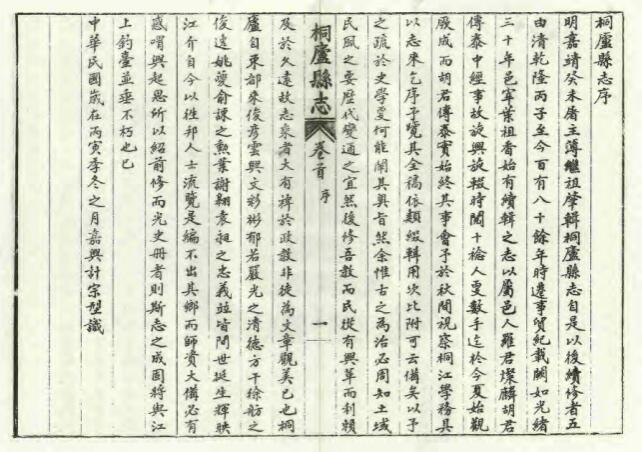 桐廬縣志序
明嘉靖癸未唐主簿繼祖肇輯桐廬縣志自是以後續修者五
由清乾隆丙子至今百有八十餘年時遷事貿紀載闕如光緒
三十年邑宰葉祖香始有續輯之志以屬邑人羅君燦麟胡君
傳泰中經事故旋興旋輟時閱十稔人更數手迄於今夏始觀
厥成而胡君傳泰實始終其事會予於秋間視察桐江學務具
以志來乞序予覽其全稿依類綴輯用次比附可云備矣以予
之疏於史學更何能闡其奧旨然余惟古之為治必周知土域
民風之要歷代變通之宜然後修吾教而民從有興革而利賴
桐廬縣志
卷首
序
一
及於久遠故志乘者大有裨於政教非徒為文章觀美已也桐
廬自東都來俊彥雲興文彩彬郁若嚴光之清德方干徐舫之
俊逸姚夔俞諫之勲業謝翱袁昶之忠義並皆間世挺生輝映
江介自今以往邦人士流覽是編不出其鄉而師資大備必有
感喟興起思所以紹前修而光史冊者則斯志之成固將與江
上釣臺並垂不朽也已
中華民國歲在丙寅季冬之月嘉興計宗型識